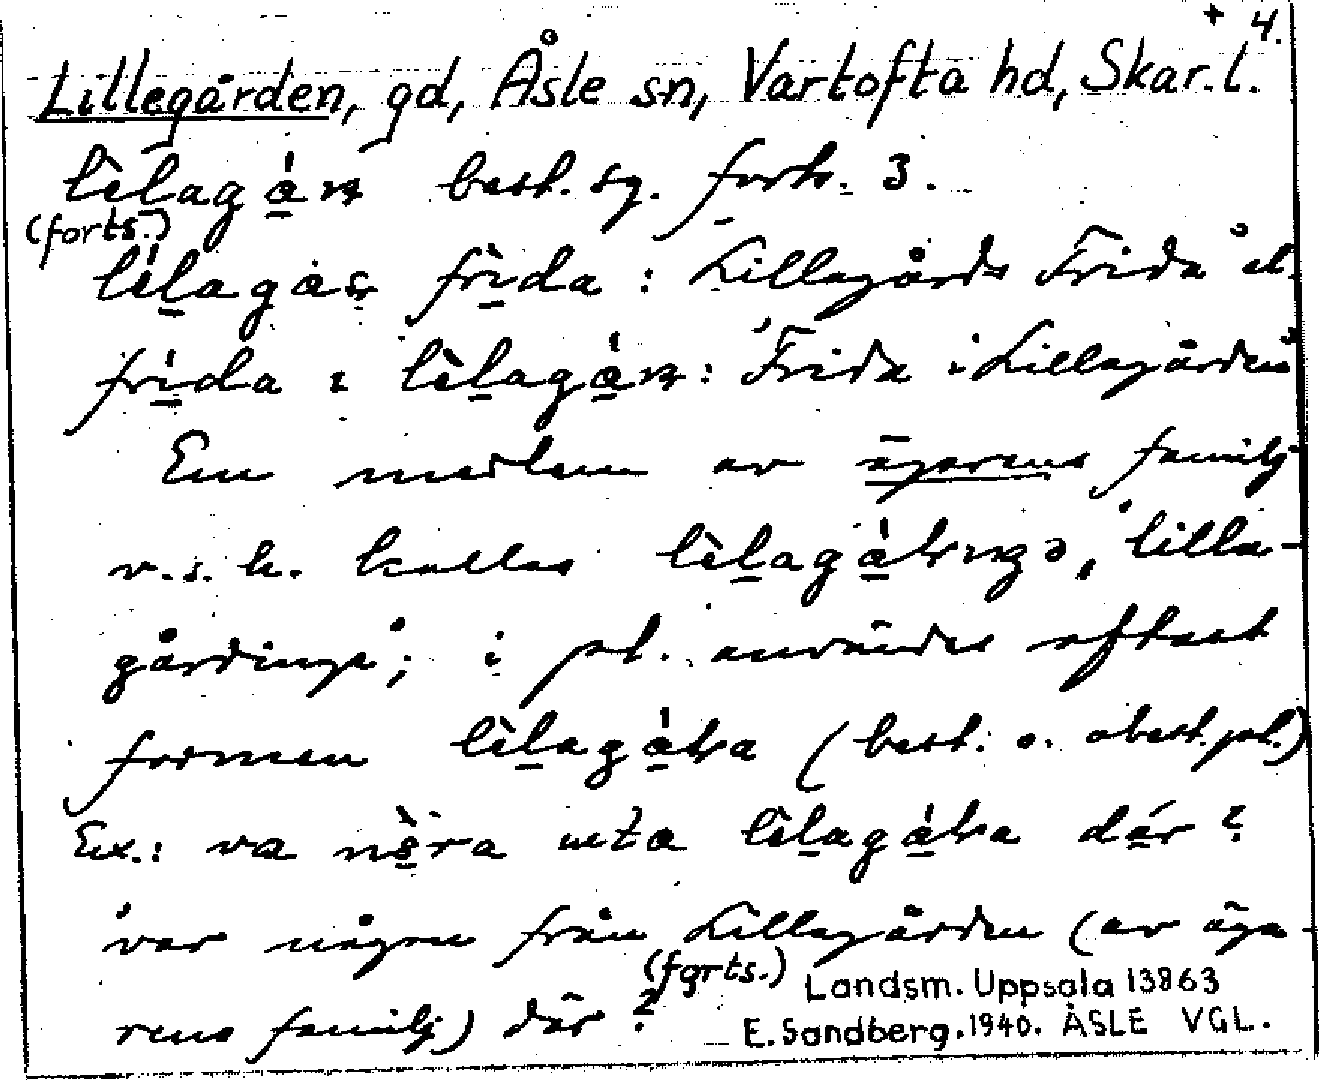 + 4.
Lillegården, gd, Åsle sn, Vartofta hd, Skar. l.
lèlagán best. sg. forts. 3.
(forts.)
lèlagås frida : Lillegårds Frida el.
frida i lèlagán : 'Frida i Lillegården'
En medlem av ägarens familj
v.s.h. kallas 'lilla-
gårdinge'; i pl. användes oftast
formen (best. o. obest. pl.)
Ex.: va nèra uta dár ?
'var någon från Lillegården (av äga-
rens familj) där ?'
(forts.)
Landsm. Uppsala 13863
E. Sandberg. 1940. ÅSLE VGL.